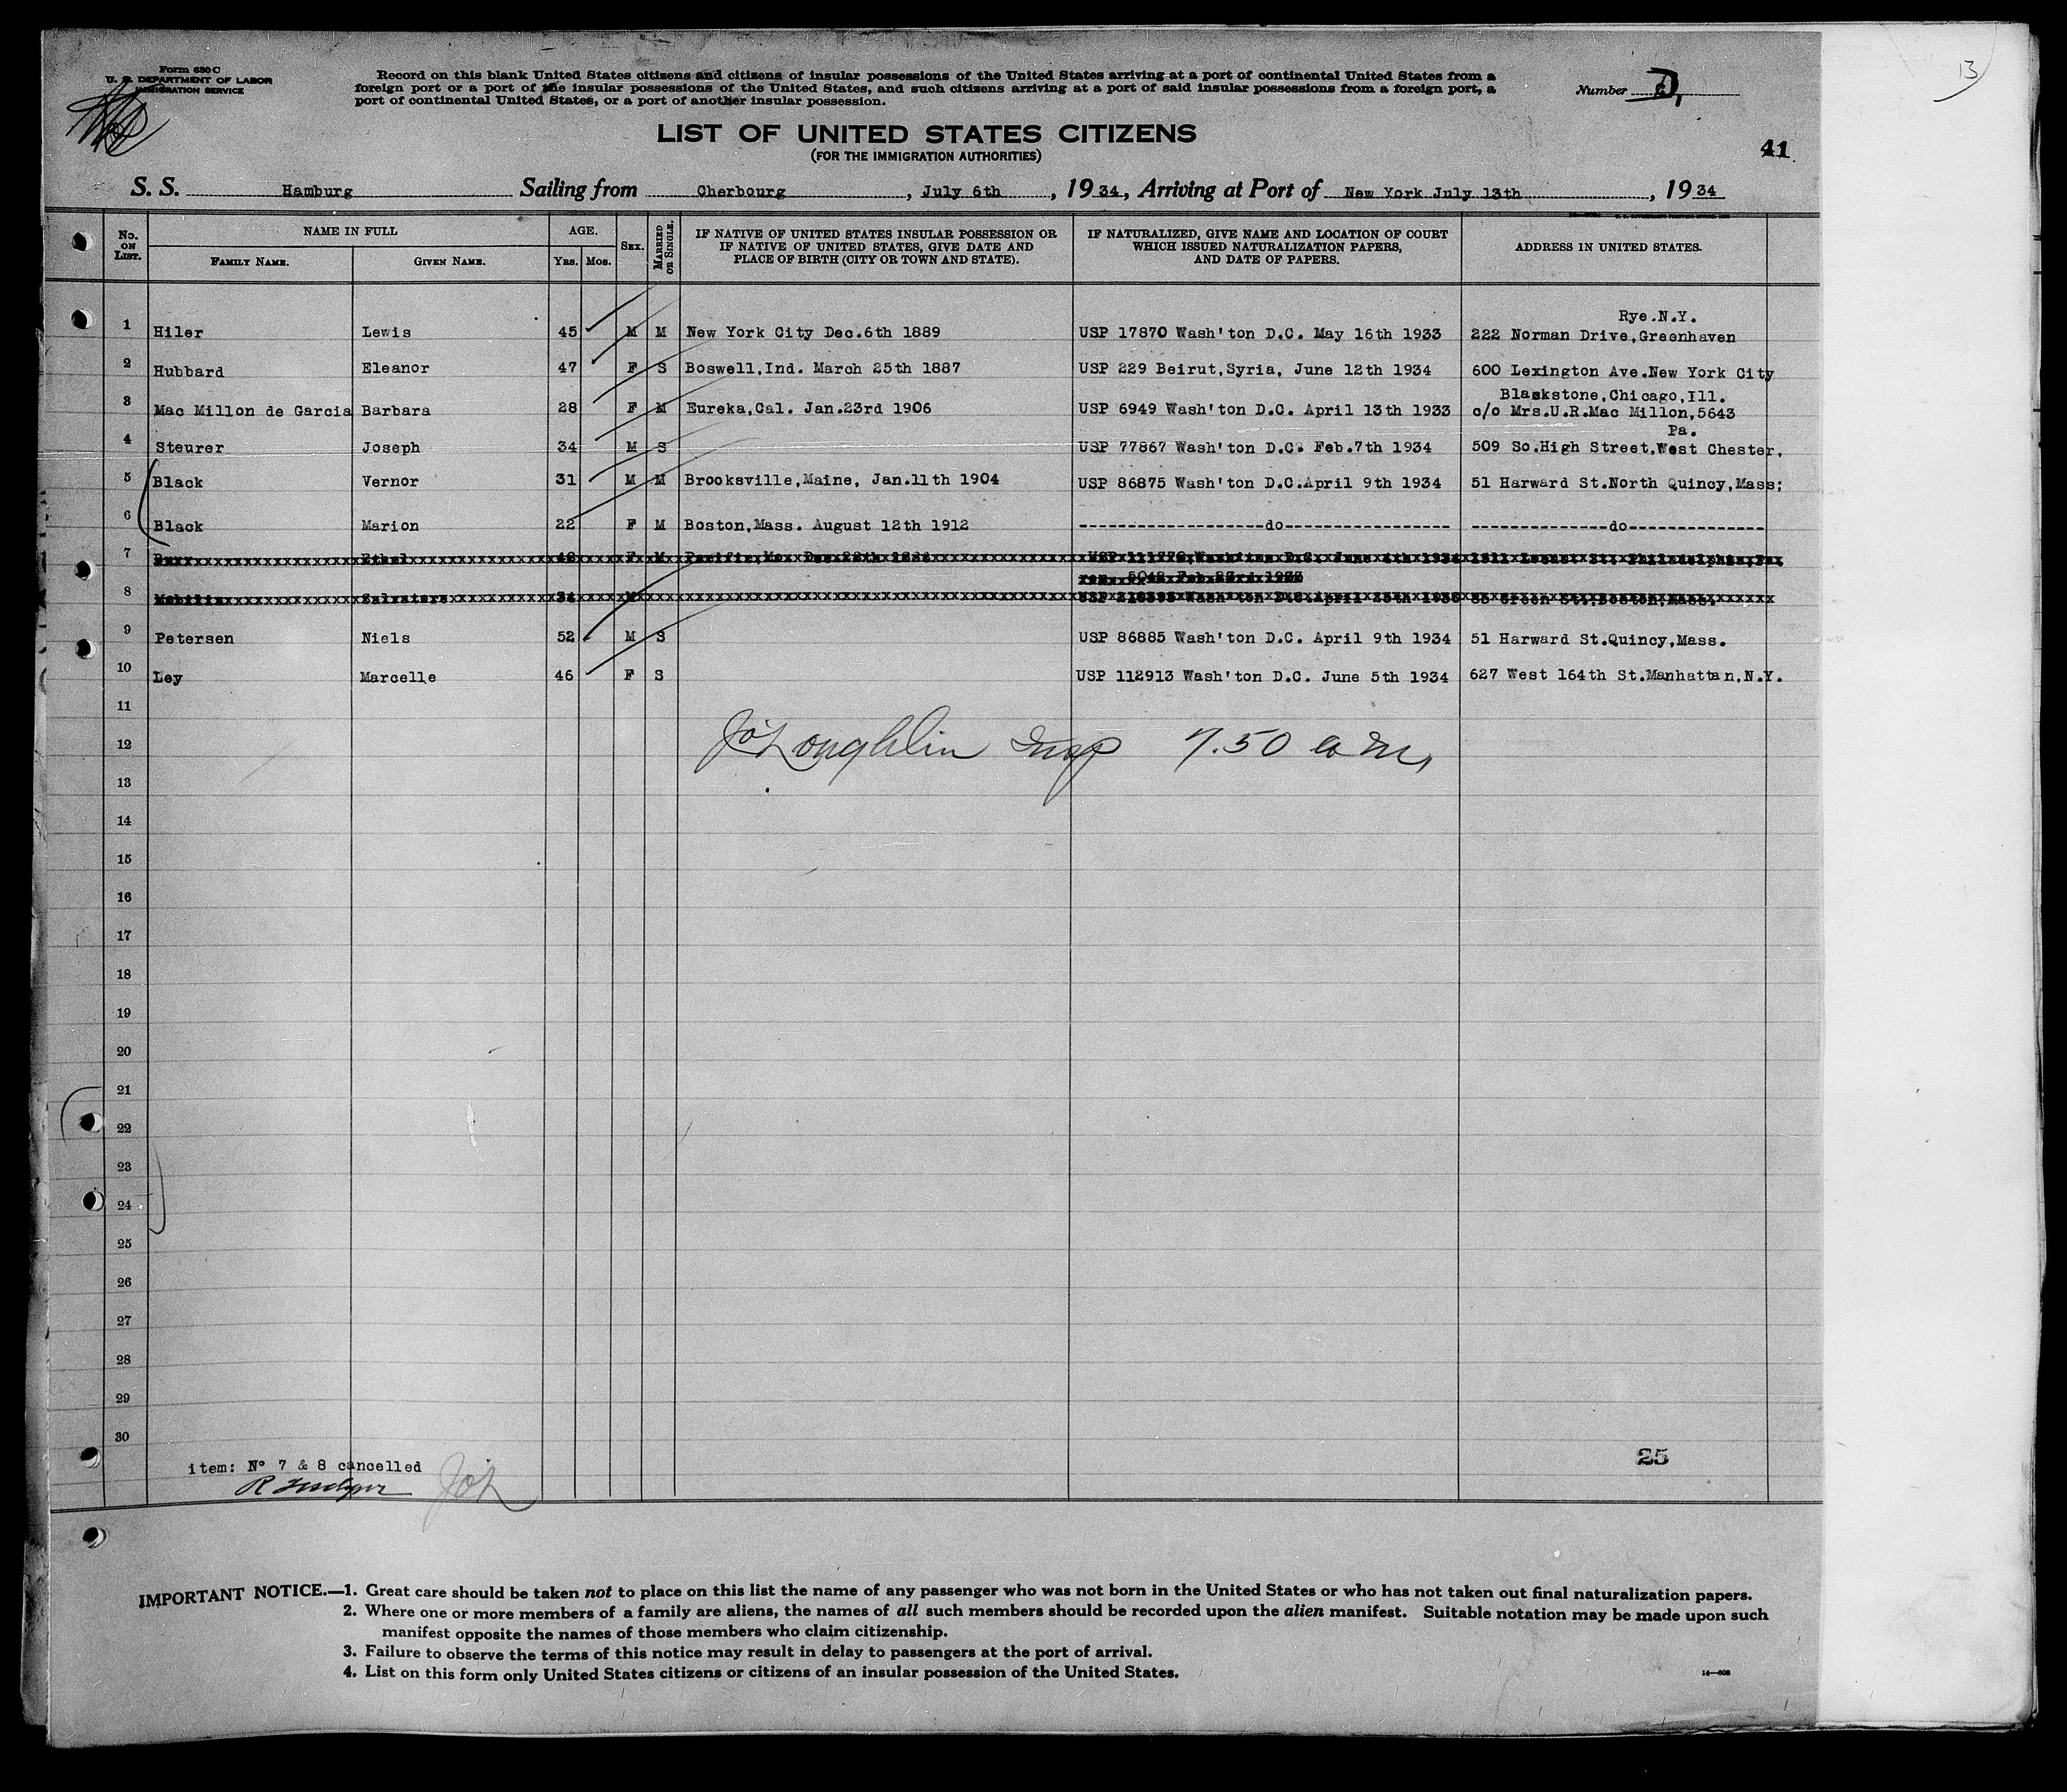 13
Form 630 C
U. S. DEPARTMENT OF LABOR
IMMIGRATION SERVICE
Record on this blank United States citizens and citizens of insular possessions of the United States arriving at a port of continental United States from a
foreign port or a port of the insular possessions of the United States, and such citizens arriving at a port of said insular possessions from a foreign port, a
port of continental United States, or a port of another insular possession.
Number
LIST OF UNITED STATES CITIZENS
(FOR THE IMMIGRATION AUTHORITIES)
41
S. S. Hamburg Sailing from Cherbourg, July 6th, 1934, Arriving at Port of New York July 13th, 1934
No. ON LIST. NAME IN FULL FAMILY NAME. GIVEN NAME. AGE. YRS. MOS. SEX. MARRIED OR SINGLE. IF NATIVE OF UNITED STATES INSULAR POSSESSION OR IF NATIVE OF UNITED STATES, GIVE DATE AND PLACE OF BIRTH (CITY OR TOWN AND STATE). IF NATURALIZED, GIVE NAME AND LOCATION OF COURT WHICH ISSUED NATURALIZATION PAPERS, AND DATE OF PAPERS. ADDRESS IN UNITED STATES.
Rye.N.Y.
1 Hiler Lewis 45 M M New York City Dec.6th 1889 USP 17870 Wash'ton D.C. May 16th 1933 222 Norman Drive,Greenhaven
2 Hubbard Eleanor 47 F S Boswell,Ind. March 25th 1887 USP 229 Beirut,Syria, June 12th 1934 600 Lexington Ave.New York City
Blaskstone,Chicago,Ill.
3 Mac Millon de Garcia Barbara 28 F M Eureka,Cal. Jan.23rd 1906 USP 6949 Wash'ton D.C. April 13th 1933 c/o Mrs.U.R.Mac Millon,5643
Pa.
4 Steurer Joseph 34 M S USP 77867 Wash'ton D.C. Feb.7th 1934 509 So.High Street,West Chester,
5 Black Vernor 31 M M Brooksville,Maine, Jan.11th 1904 USP 86875 Wash'ton D.C.April 9th 1934 51 Harward St.North Quincy,Mass;
6 Black Marion 22 F M Boston,Mass. August 12th 1912 -------------------do----------------- --------------do--------------
7 Ethel F M June 4th 1934 1811 Locust St. Philadelphia,Pa.
8 Salvatore M Wash'ton D.C.April 85 Green St.,Boston,Mass.
9 Petersen Niels 52 M S USP 86885 Wash'ton D.C. April 9th 1934 51 Harward St.Quincy,Mass.
10 Ley Marcelle 46 F S USP 112913 Wash'ton D.C. June 5th 1934 627 West 164th St.Manhattan,N.Y.
11
12 JO'Loughlin Insp 7.50 a m,
13
14
15
16
17
18
19
20
21
22
23
24
25
26
27
28
29
30
25
item: No 7 & 8 cancelled
JO'L
IMPORTANT NOTICE.—1. Great care should be taken not to place on this list the name of any passenger who was not born in the United States or who has not taken out final naturalization papers.
2. Where one or more members of a family are aliens, the names of all such members should be recorded upon the alien manifest. Suitable notation may be made upon such
manifest opposite the names of those members who claim citizenship.
3. Failure to observe the terms of this notice may result in delay to passengers at the port of arrival.
4. List on this form only United States citizens or citizens of an insular possession of the United States.